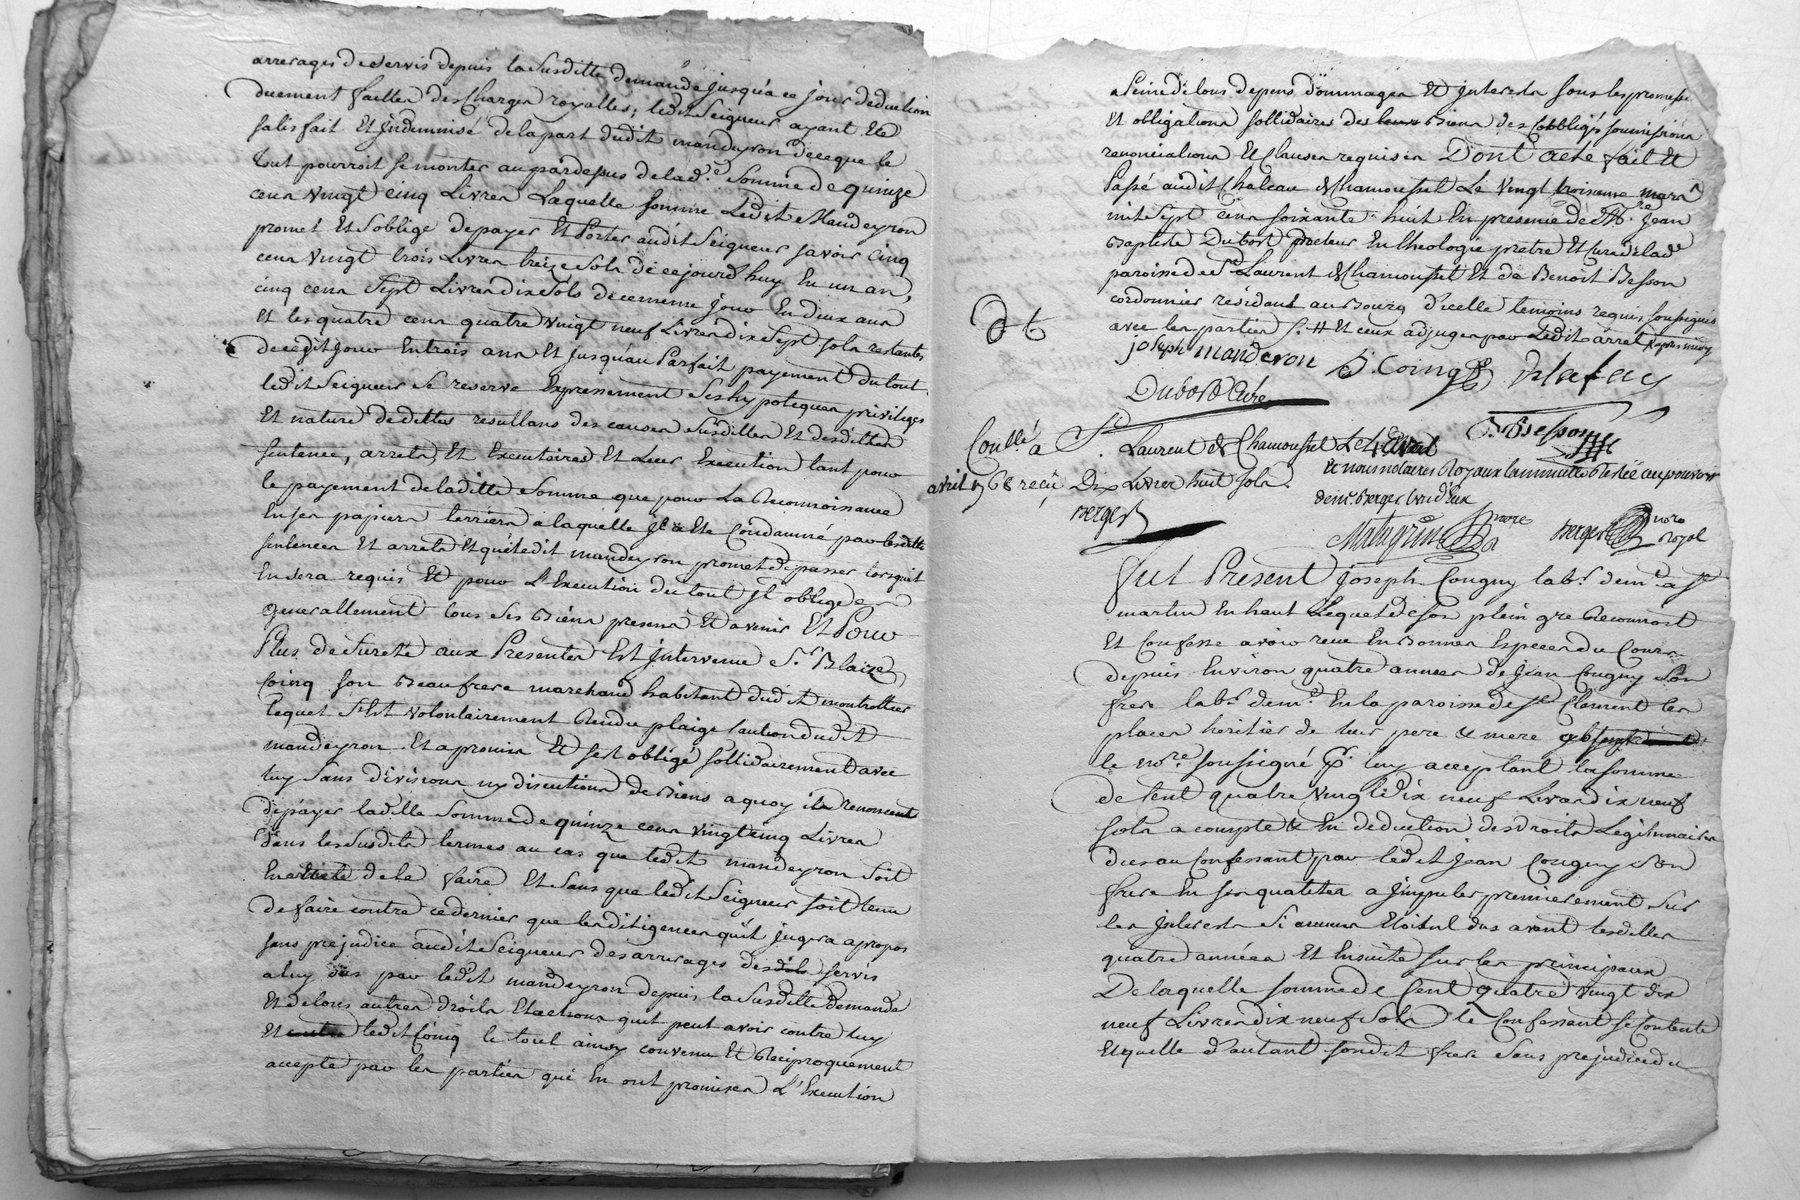 arrerages de servis depuis la susditte demande jusqu'a ce jour deduction
duement faittes des charges royalles, ledit seigneur ayant ete
satisfait et indemnisé de la part dudit mandeyron de ce que le
tout pourroit se monter au par dessus de lad.e somme de quinze
cens vingt cinq livres laquelle somme ledit Mandeyron
promet et s'oblige de payer et porter audit seigneur savoir cinq
cens vingt trois livres treize sols de ce jourd'huy en un an,
cinq cens sept livres dix sols de ce meme jour en deux ans
et les quatre cens quatre vingt neuf livres dix sept sols restantes
de cedit jour en trois ans et jusqu'au parfait payement du tout
ledit seigneur se reserve expressement ses hypoteques privileges
et nature de dettes resultans des causes susdittes et desdittes
sentence, arrets, et executoires et leur execution tant pour
le payement de laditte somme que pour la reconnoissance
en ses papiers terriers a laquelle il a ete condamné par lesdittes
sentences et arrets et que ledit mandeyron promet de passer lorsqu'il
en sera requis et pour l'execution du tout il oblige
generallement tous ses biens presens et avenir Et Pour
Plus de sureté aux Presentes Est intervenu S.r Blaize
Coinq son beaufrere marchand habitant dudit montrottier
lequel s'est volontairement rendu plaige caution dudit
mandeyron et a promis et s'est obligé sollidairement avec
luy sans division ny discution de biens a quoy ils renoncent
de payer laditte somme de quinze cens vingt cinq livres
dans les susdits termes au cas que ledit mandeyron soit
en de le faire et sans que ledit seigneur soit tenu
de faire contre ce dernier que les diligences qu'il jugera apropos
sans prejudice audit seigneur des arrerages desdits servis
a luy dus par ledit mandeyron depuis la susditte demande
et de tous autres droits et actions qu'il peut avoir contre luy
et contre ledit Coinq le tout ainsy convenu et reciproquement
accepté par les parties qui en ont promises l'execution
a peine de tous depens dommages et interets sous les promesses
et obligations sollidaires des biens des obbligés soumissions
renonciations et clauses requises Dont acte fait et
passé audit chateau de Chamousset le vingt troisieme mars
mil sept cens soixante huit en presence de M.re Jean
Baptiste Dubost docteur en theologie pretre et curé de lad.e
paroisse de S.t Laurent de Chamousset et de Benoit Besson
cordonnier residant au bourg d'icelle temoins requis soussignés
avec les parties /. # et ceux adjugés par ledit arret /. apres midy
joseph manderon B. Coing Delafay
Dubost Curé
B. Besson
Conllé a S.t Laurent de Chamousset le avril
avril 1768 reçu Dix livres huit sols.
et nous notaires royaux la minutte restée au pouvoir
de m.e Berger l'un d'eux
Berger
Matagrin nore
Berger nore royal
Fut Present joseph Cougny lab.r dem.t a S.t
martin en haut lequel de son plein gré reconnoit
et confesse avoir reçu en bonnes especes du cours
depuis environ quatre années de jean Cougny son
frere lab.r dem.t en la paroisse de S.te Clement les
places heritier de leur pere & mere absent
le no.re soussigné p.r luy acceptant la somme
de cent quatre vingt dix neuf livres dix neuf
sols a compte & en deduction des droits legitimaires
dues au confessant par ledit jean Cougny son
frere en ses qualites a imputer premierement sur
les interets si aucuns etoient dus avant lesdittes
quatre années et ensuite sur les principaux
De laquelle somme de cent quatre vingt dix
neuf livres dix neuf sols le confessant se contente
et quitte d'autant sondit frere sans prejudice du